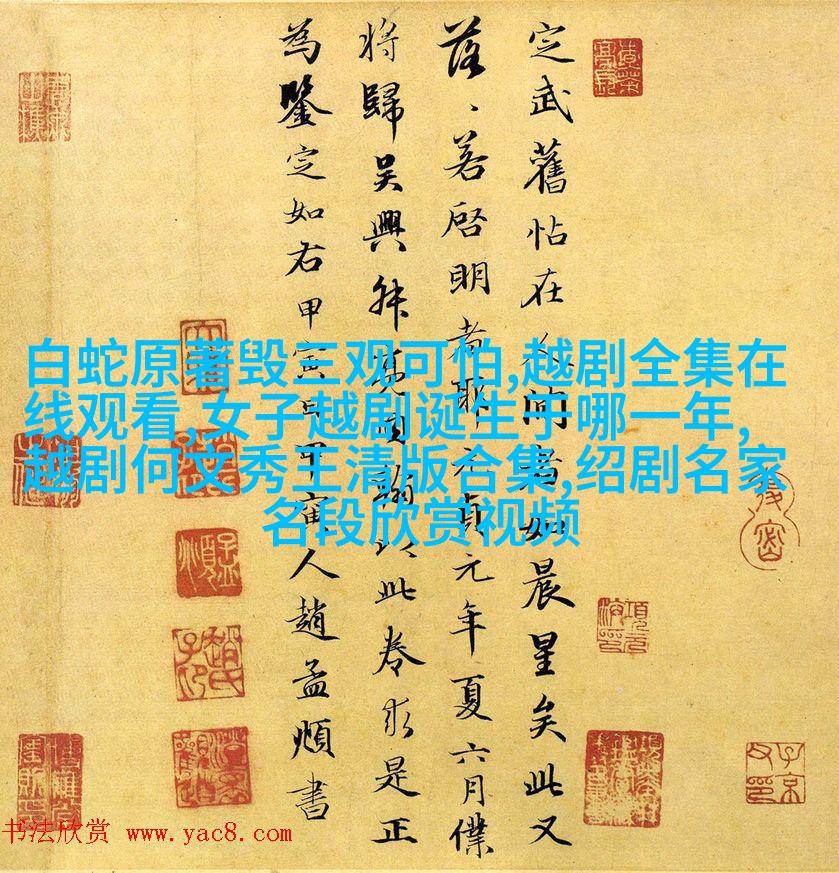 白蛇原著毁三观可怕,越剧全集在
线观看,女子越剧诞生于哪一年,
越剧何文秀王清版合集,绍剧名家
名段欣赏视频
定武舊帖在人間者如晨星矣此又
落、若啓明者耶元貞元年夏六月僕
將歸吳興 以此卷求是正
為鑒定如右甲寅日甲寅人趙孟頫書
书法欣赏 www.yac8.com